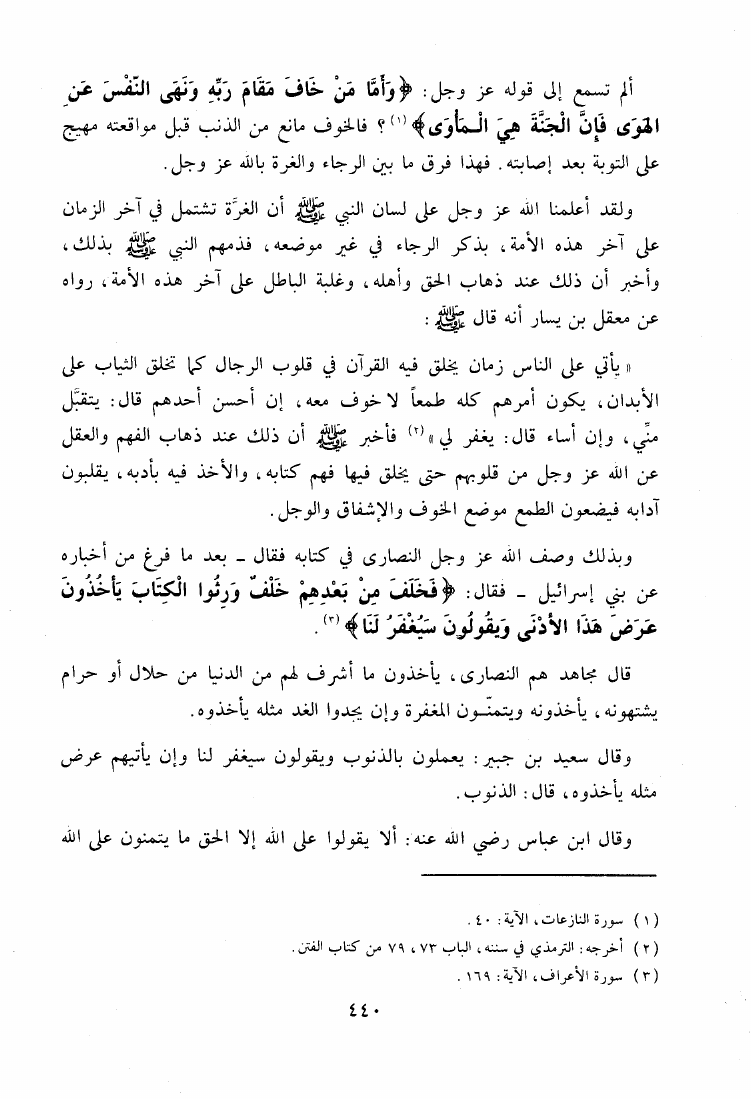 ألم تسمع إلى قوله عز وجل: ﴿وَأَمَّا مَنْ خَافَ مَقَامَ رَبِّهِ وَنَهَى النَّفْسَ عَنِ
الهَوَى فَإِنَّ الْجَنَّةَ هِيَ الْـمَأوَى﴾(١)؟ فالخوف مانع من الذنب قبل مواقعته مهيج
على التوبة بعد إصابته. فهذا فرق ما بين الرجاء والغرة بالله عز وجل.
ولقد أعلمنا الله عز وجل على لسان النبي ﷺ أن الغرَّة تشتمل في آخر الزمان
على آخر هذه الأمة، بذكر الرجاء في غير موضعه، فذمهم النبي ﷺ بذلك،
وأخبر أن ذلك عند ذهاب الحق وأهله، وغلبة الباطل على آخر هذه الأمة، رواه
عن معقل بن يسار أنه قال ﷺ:
«يأتي على الناس زمان يخلق فيه القرآن في قلوب الرجال كما تخلق الثياب على
الأبدان، يكون أمرهم كله طمعاً لا خوف معه، إن أحسن أحدهم قال: يتقبَّل
منِّي، وإن أساء قال: يغفر لي»(٢) فأخبر ﷺ أن ذلك عند ذهاب الفهم والعقل
عن الله عز وجل من قلوبهم حتى يخلق فيها فهم كتابه، والأخذ فيه بأدبه، يقلبون
آدابه فيضعون الطمع موضع الخوف والإشفاق والوجل.
وبذلك وصف الله عز وجل النصارى في كتابه فقال - بعد ما فرغ من أخباره
عن بني إسرائيل - فقال: ﴿فَخَلَفَ مِنْ بَعْدِهِمْ خَلْفٌ وَرِثُوا الْكِتَابَ يَأخُذُونَ
عَرَضَ هَذَا الأدْنَى وَيَقُولُونَ سَيُغْفَرُ لَنَا﴾(٣).
قال مجاهد هم النصارى، يأخذون ما أشرف لهم من الدنيا من حلال أو حرام
يشتهونه، يأخذونه ويتمنّـون المغفرة وإن يجدوا الغد مثله يأخذوه.
وقال سعيد بن جبير: يعملون بالذنوب ويقولون سيغفر لنا وإن يأتيهم عرض
مثله يأخذوه، قال: الذنوب.
وقال ابن عباس رضي الله عنه: ألا يقولوا على الله إلا الحق ما يتمنون على الله
(١) سورة النازعات، الآية: ٤٠.
(٢) أخرجه: الترمذي في سننه، الباب ٧٣، ٧٩ من كتاب الفتن.
(٣) سورة الأعراف، الآية: ١٦٩.
٤٤٠